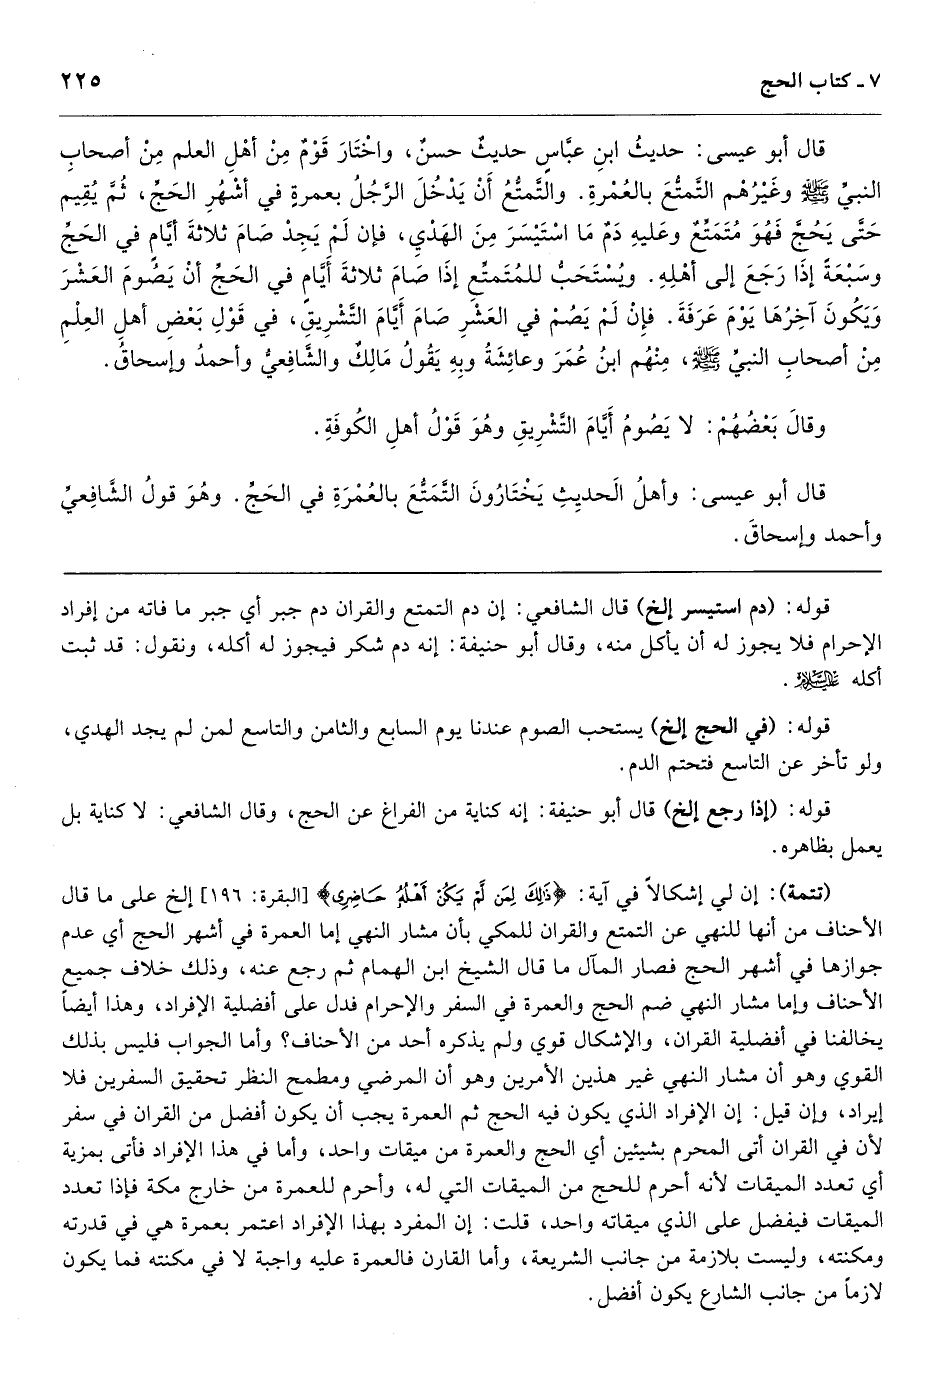 ٧ ـ كتاب الحج
٢٢٥
قال أبو عيسى: حديثُ ابنِ عبَّاسٍ حديثٌ حسنٌ، واخْتَارَ قَوْمٌ مِنْ أهْلِ العلم مِنْ أصحابِ
النبيِّ ﷺ وغَيْرُهُم التَّمتُّعَ بالعُمْرةِ. والتَّمتُّعُ أنْ يَدْخُلَ الرَّجُلُ بعمرةٍ في أشْهُرِ الحَجِّ، ثُمَّ يُقِيم
حَتَّى يَحُجَّ فَهُوَ مُتَمَتِّعٌ وعَليهِ دَمٌ مَا اسْتَيْسَرَ مِنَ الهَدْيِ، فإن لَمْ يَجِدْ صَامَ ثلاثةَ أيَّامٍ في الحَجِّ
وسَبْعَةً إذَا رَجَعَ إلى أهْلِهِ. ويُسْتَحَبُّ للمُتَمتِّعِ إذَا صَامَ ثلاثةَ أيَّامٍ في الحَجِّ أنْ يَصُومَ العَشْرَ
وَيَكُونَ آخِرُهَا يَوْمَ عَرَفَةَ. فإنْ لَمْ يَصُمْ في العَشْرِ صَامَ أيَّامَ التَّشْرِيقِ، في قَوْلِ بَعْضِ أهلِ العِلْمِ
مِنْ أصحابِ النبيِّ ﷺ، مِنْهُم ابنُ عُمَرَ وعائِشَةُ وبِهِ يَقُولُ مَالِكٌ والشَّافعِيُّ وأحمدُ وإسحاقُ.
وقالَ بَعْضُهُمْ: لا يَصُومُ أيَّامَ التَّشْرِيقِ وهُوَ قَوْلُ أهلِ الكُوفَةِ.
قال أبو عيسى: وأهلُ الحَديثِ يَخْتَارُونَ التَّمَتُّعَ بالعُمْرَةِ في الحَجِّ. وهُوَ قولُ الشَّافعِيِّ
وأحمد وإسحاقَ.
قوله: (دم استيسر إلخ) قال الشافعي: إن دم التمتع والقران دم جبر أي جبر ما فاته من إفراد
الإحرام فلا يجوز له أن يأكل منه، وقال أبو حنيفة: إنه دم شكر فيجوز له أكله، ونقول: قد ثبت
أكله عليه السلام.
قوله: (في الحج إلخ) يستحب الصوم عندنا يوم السابع والثامن والتاسع لمن لم يجد الهدي،
ولو تأخر عن التاسع فتحتم الدم.
قوله: (إذا رجع إلخ) قال أبو حنيفة: إنه كناية من الفراغ عن الحج، وقال الشافعي: لا كناية بل
يعمل بظاهره.
(تتمة): إن لي إشكالاً في آية: ﴿ذَٰلِكَ لِمَن لَّمْ يَكُنْ أَهْلُهُ حَاضِرِى﴾ [البقرة: ١٩٦] إلخ على ما قال
الأحناف من أنها للنهي عن التمتع والقران للمكي بأن مشار النهي إما العمرة في أشهر الحج أي عدم
جوازها في أشهر الحج فصار المآل ما قال الشيخ ابن الهمام ثم رجع عنه، وذلك خلاف جميع
الأحناف وإما مشار النهي ضم الحج والعمرة في السفر والإحرام فدل على أفضلية الإفراد، وهذا أيضاً
يخالفنا في أفضلية القران، والإشكال قوي ولم يذكره أحد من الأحناف؟ وأما الجواب فليس بذلك
القوي وهو أن مشار النهي غير هذين الأمرين وهو أن المرضي ومطمح النظر تحقيق السفرين فلا
إيراد، وإن قيل: إن الإفراد الذي يكون فيه الحج ثم العمرة يجب أن يكون أفضل من القران في سفر
لأن في القران أتى المحرم بشيئين أي الحج والعمرة من ميقات واحد، وأما في هذا الإفراد فأتى بمزية
أي تعدد الميقات لأنه أحرم للحج من الميقات التي له، وأحرم للعمرة من خارج مكة فإذا تعدد
الميقات فيفضل على الذي ميقاته واحد، قلت: إن المفرد بهذا الإفراد اعتمر بعمرة هي في قدرته
ومكنته، وليست بلازمة من جانب الشريعة، وأما القارن فالعمرة عليه واجبة لا في مكنته فما يكون
لازماً من جانب الشارع يكون أفضل.